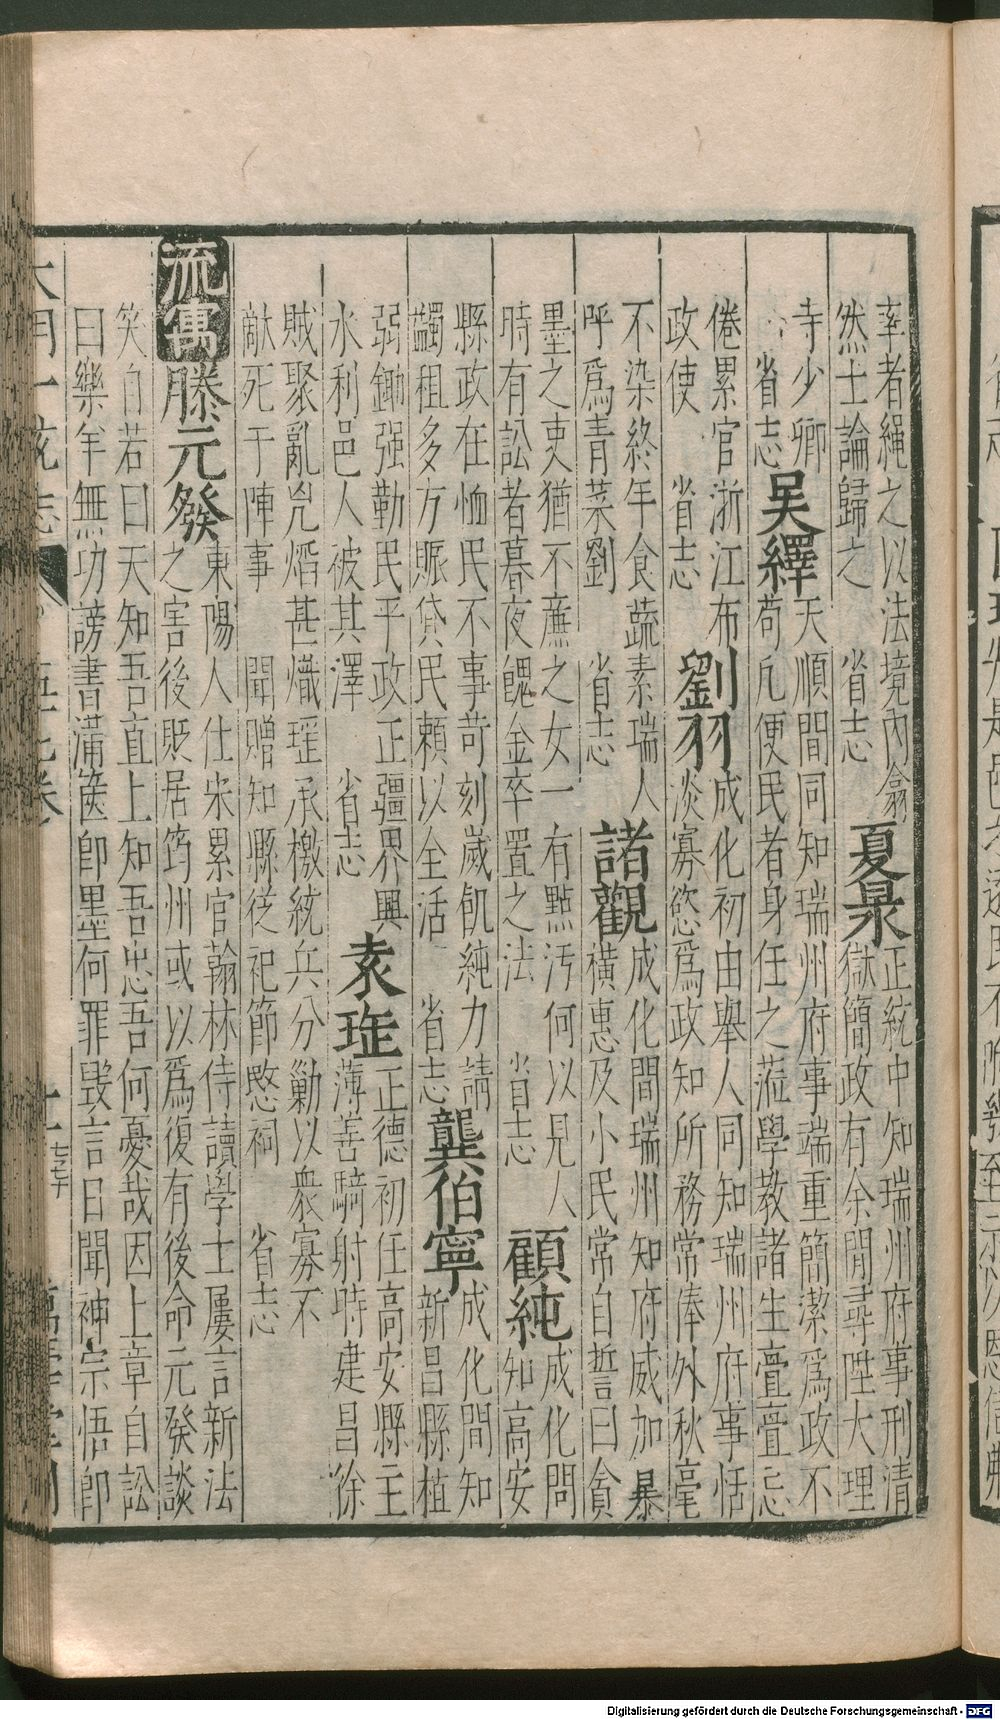 臺者繩之以法境內翕
然士論歸之 省志
夏昺
正統中知瑞州府事刑清
獄簡政有余閒尋陞大理
寺少卿 省志
吴繹
天順間同知瑞州府事端重簡潔爲政不
苟凢便民者身任之蒞學教諸生亹亹忘
倦累官浙江布
政使 省志
劉羽
成化初由舉人同知瑞州府事恬
淡寡慾爲政知所務常俸外秋毫
不染終年食蔬素瑞人
呼爲青菜劉 省志
諸觀
成化間瑞州知府威加暴
橫惠及小民常自誓曰貪
墨之吏猶不亷之女一有點汚何以見人
時有訟者暮夜餽金卒置之法 省志
顧純
成化間
知高安
縣政在恤民不事苛刻歲飢純力請
蠲租多方賑貸民賴以全活 省志
龔伯寧
成化間知
新昌縣植
弱鋤强勒民平政正疆界興
水利邑人被其澤 省志
袁璡
正德初任高安縣主
薄善騎射時建昌徐
賊聚亂兇熖甚熾璡承檄統兵分勦以衆寡不
敵死于陣事 聞贈知縣從祀節愍祠 省志
流寓
滕元發
東陽人仕宋累官翰林侍讀學士屢言新法
之害後貶居筠州或以爲復有後命元發談
笑自若曰天知吾直上知吾忠吾何憂哉因上章自訟
曰樂羊無功謗書滿篋卽墨何罪毀言日聞神宗悟卽
大明一统志
卷
Digitalisierung gefördert durch die Deutsche Forschungsgemeinschaft - DFG